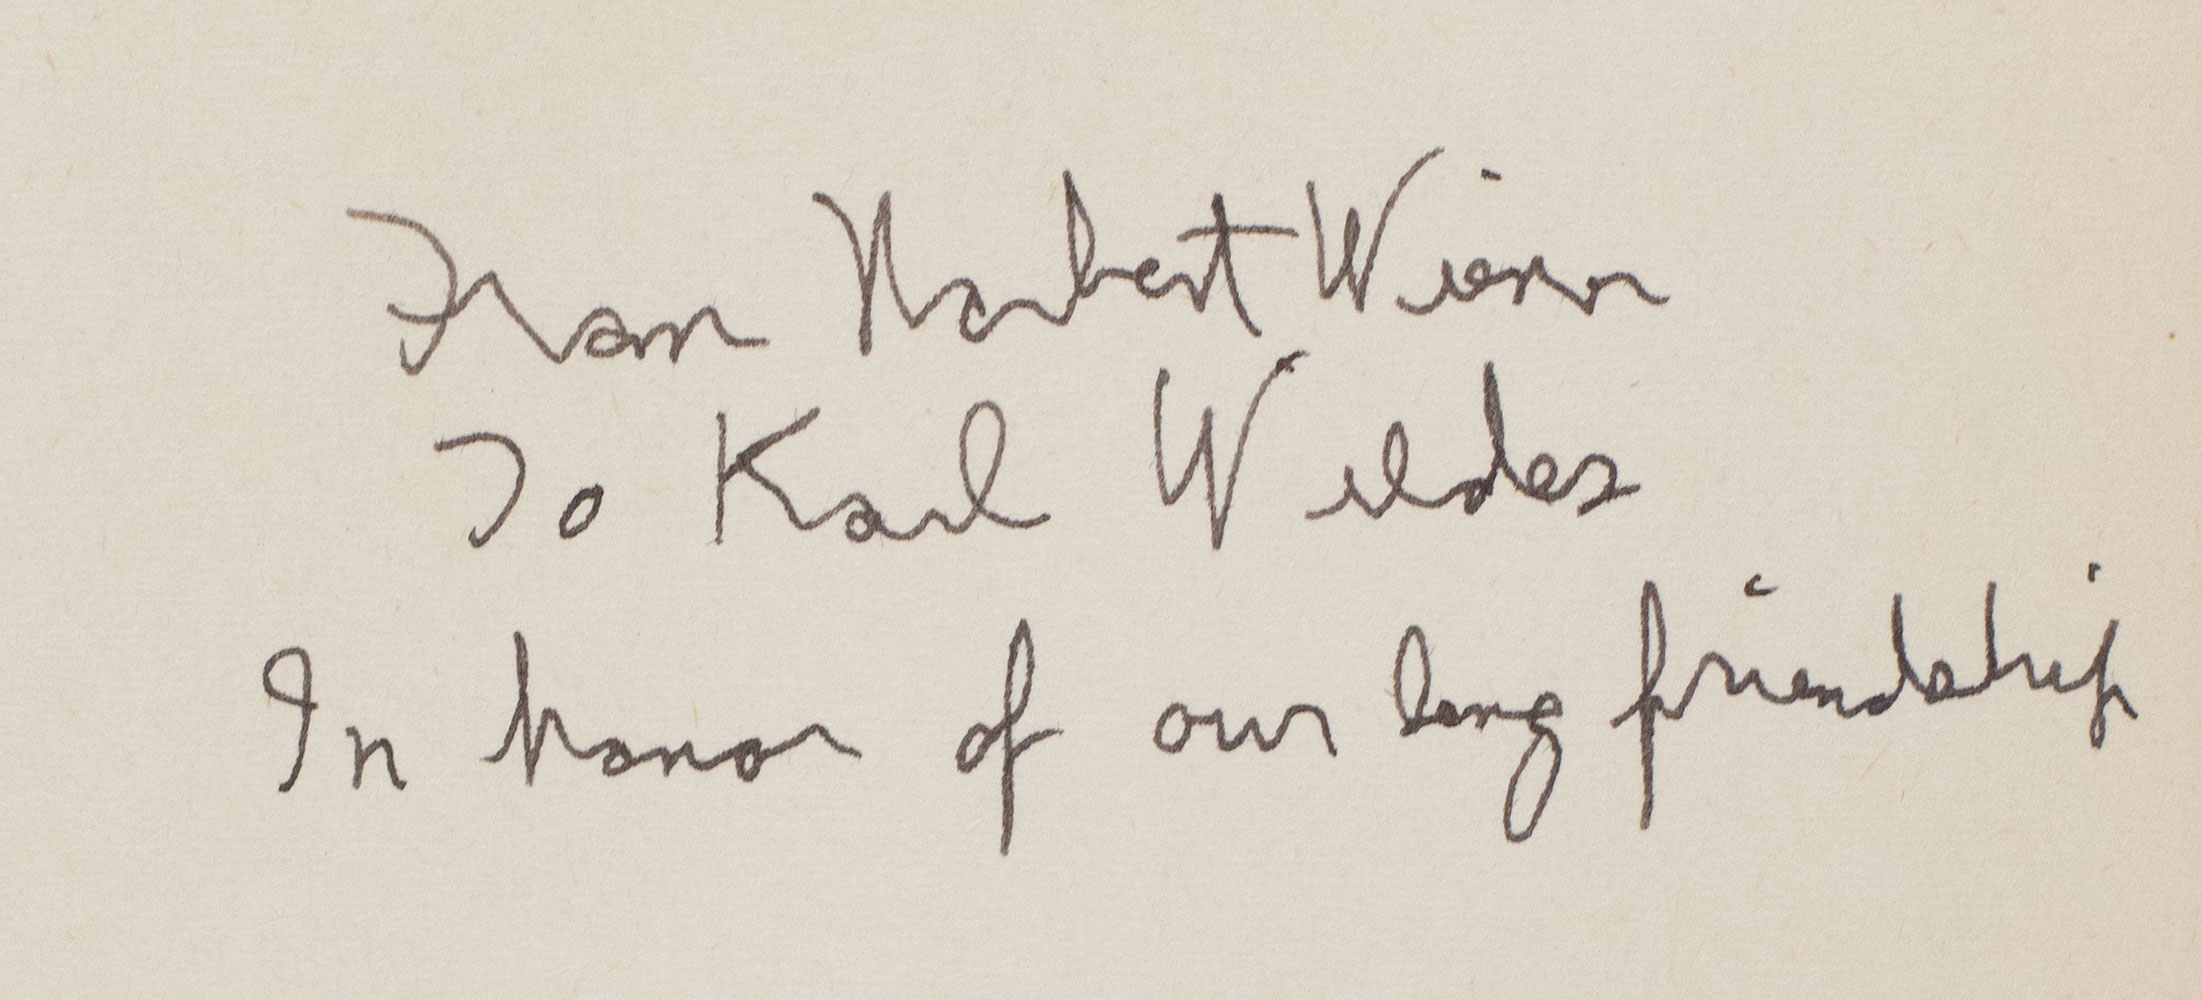 From Norbert Wiener
To Karl Wildes
In honor of our long friendship